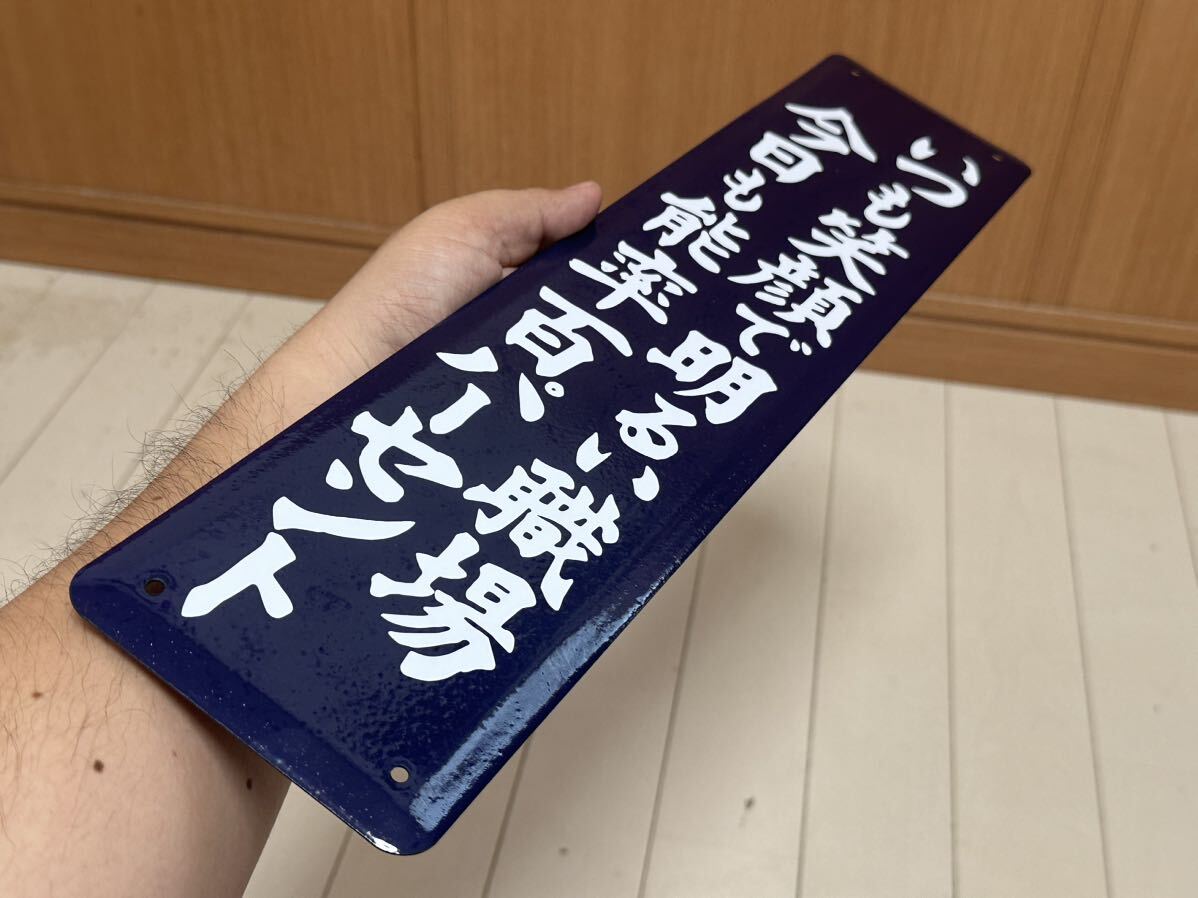 いつも笑顔で明るい職場
今日も能率百パーセント